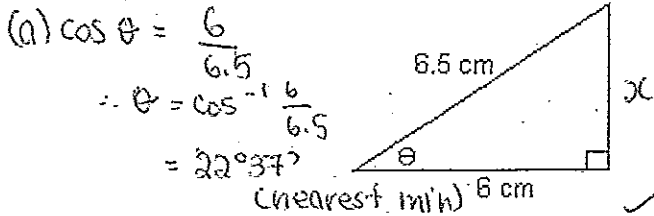 (a) cos θ = 6/6.5
∴ θ = cos⁻¹ 6/6.5
= 22°37'
(nearest min)
6.5 cm
x
θ
6 cm